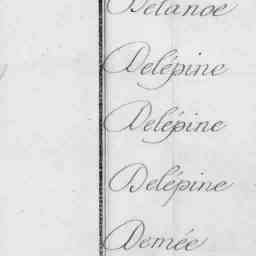 Delanoe
Delépine
Delépine
Delépine
Demée